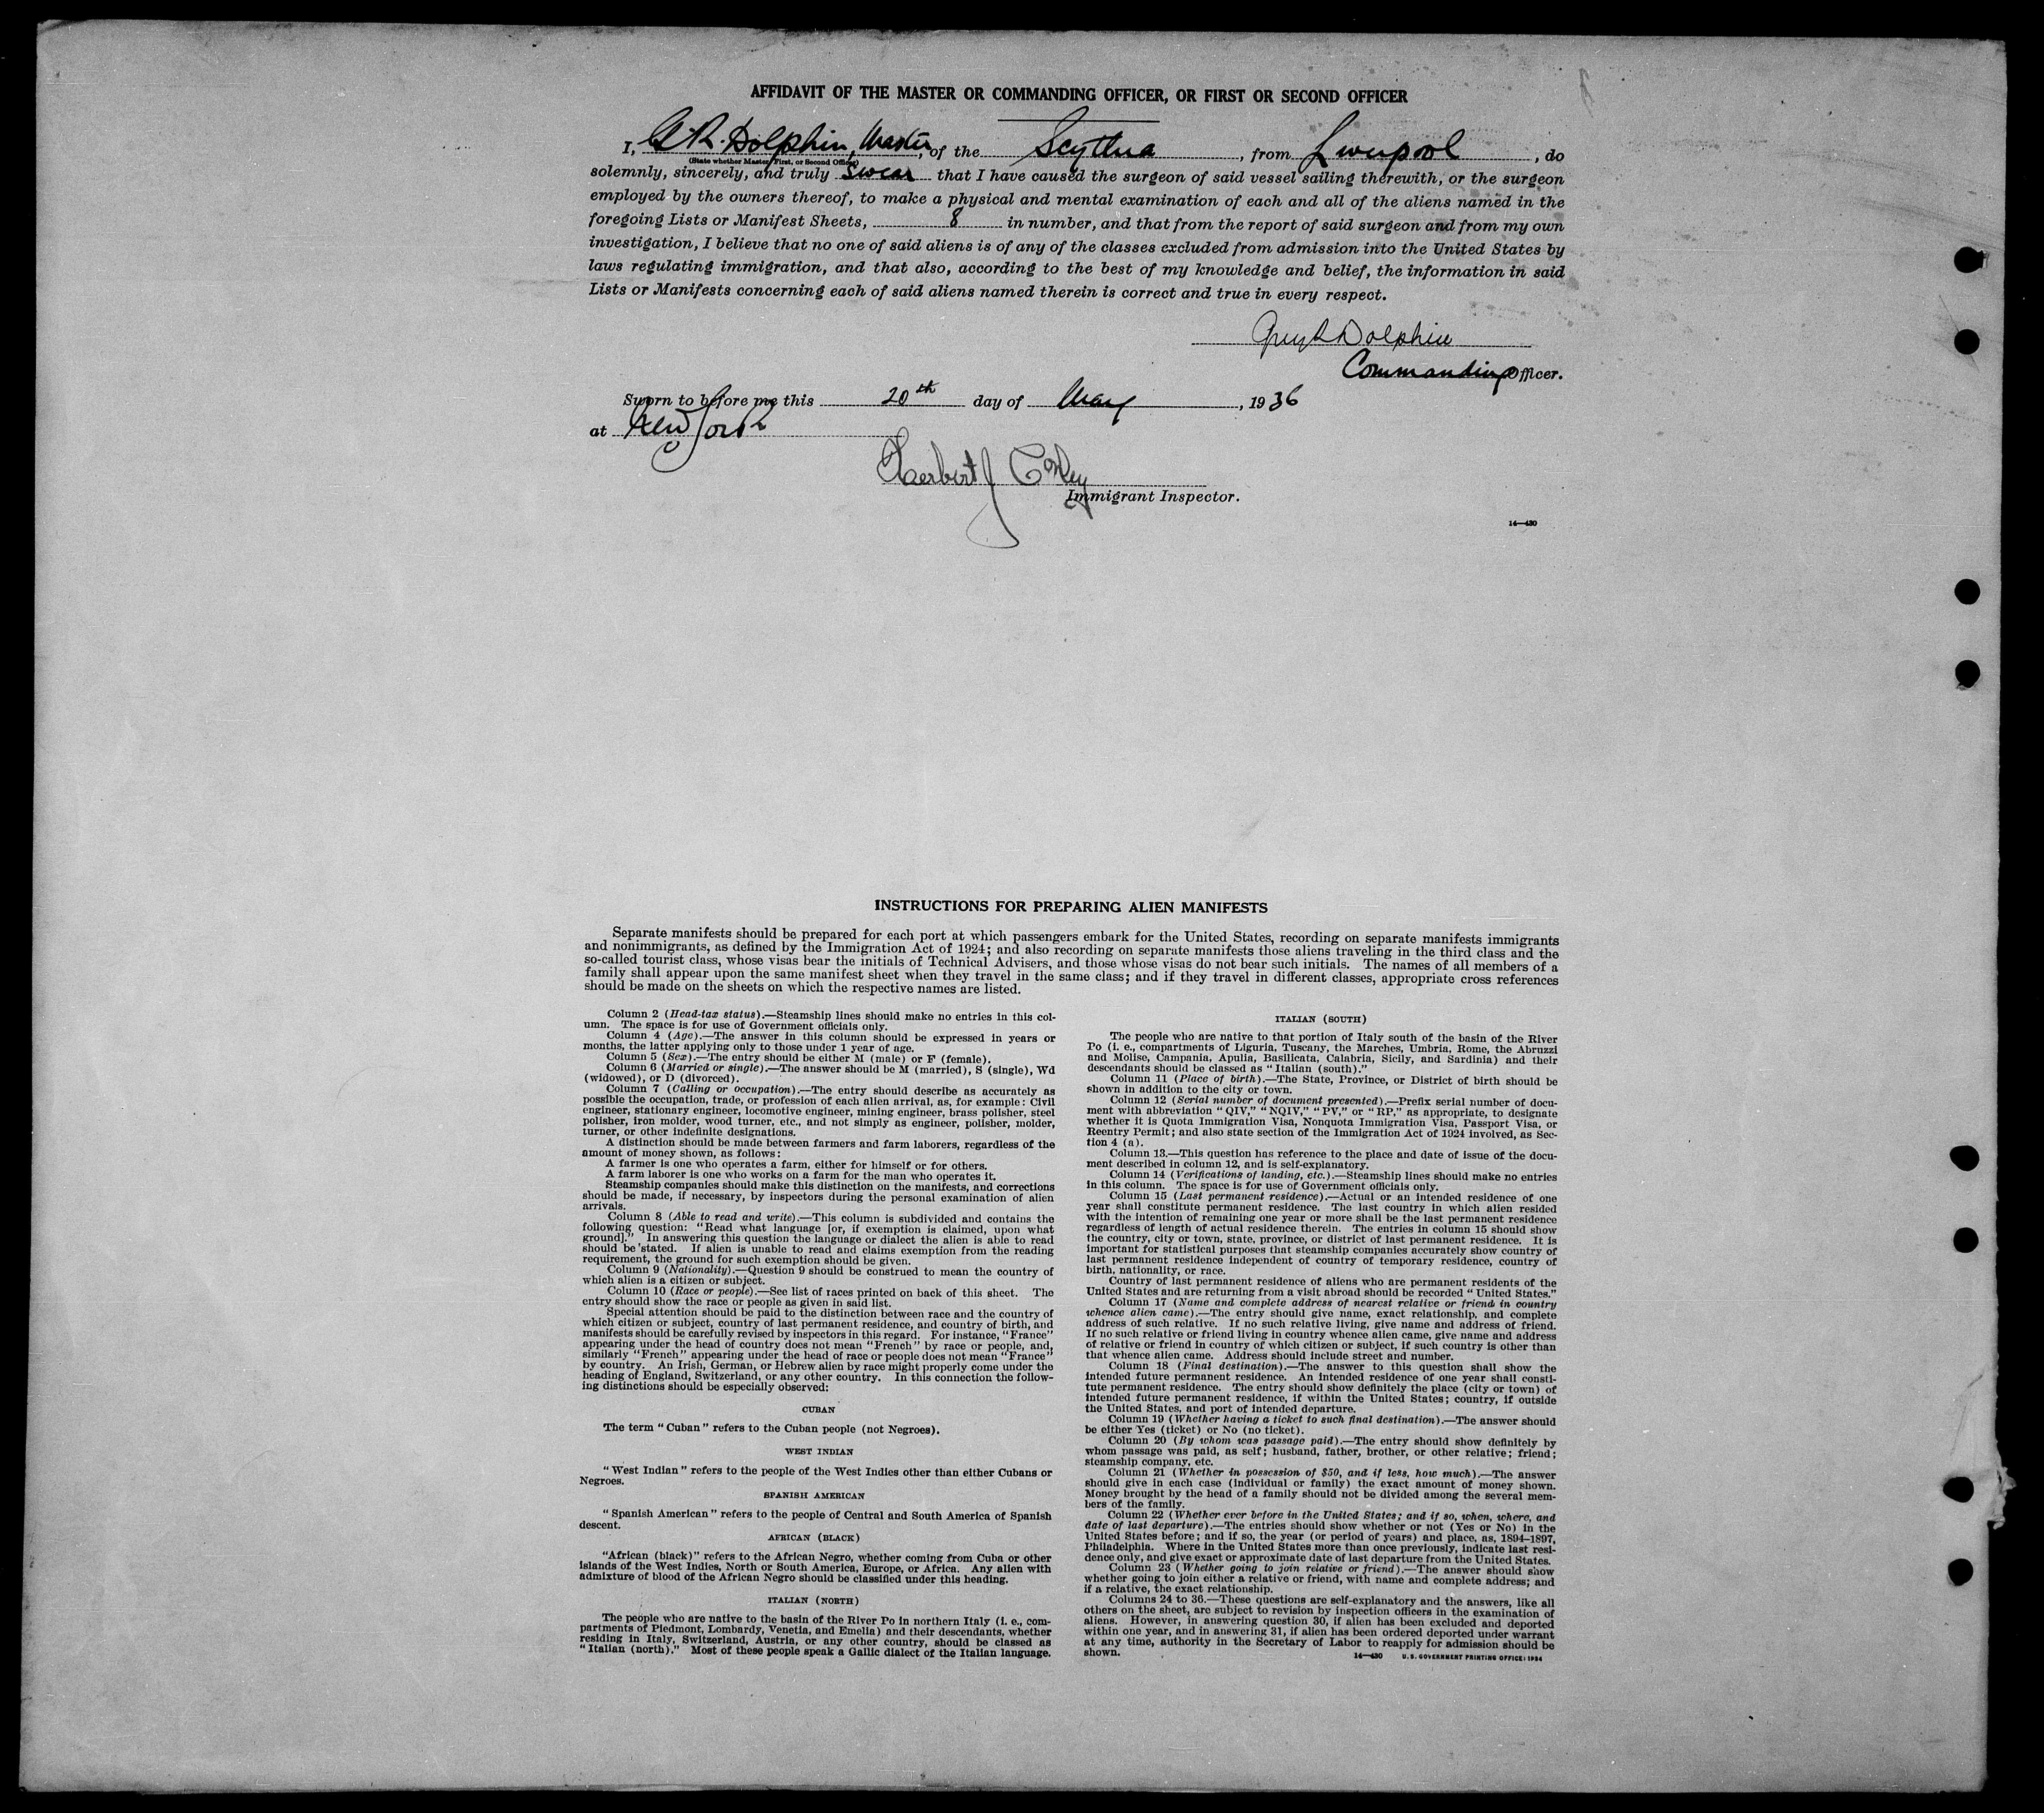 AFFIDAVIT OF THE MASTER OR COMMANDING OFFICER, OR FIRST OR SECOND OFFICER
I, G.R. Dolphin, Master, of the Scythia, from Liverpool, do
(State whether Master, First, or Second Officer)
solemnly, sincerely, and truly swear that I have caused the surgeon of said vessel sailing therewith, or the surgeon
employed by the owners thereof, to make a physical and mental examination of each and all of the aliens named in the
foregoing Lists or Manifest Sheets, 8 in number, and that from the report of said surgeon and from my own
investigation, I believe that no one of said aliens is of any of the classes excluded from admission into the United States by
laws regulating immigration, and that also, according to the best of my knowledge and belief, the information in said
Lists or Manifests concerning each of said aliens named therein is correct and true in every respect.
Dolphin
Commanding Officer.
Sworn to before me this 20th day of May, 1936
at New York
Herbert J
Immigrant Inspector.
14—430
INSTRUCTIONS FOR PREPARING ALIEN MANIFESTS
Separate manifests should be prepared for each port at which passengers embark for the United States, recording on separate manifests immigrants
and nonimmigrants, as defined by the Immigration Act of 1924; and also recording on separate manifests those aliens traveling in the third class and the
so-called tourist class, whose visas bear the initials of Technical Advisers, and those whose visas do not bear such initials. The names of all members of a
family shall appear upon the same manifest sheet when they travel in the same class; and if they travel in different classes, appropriate cross references
should be made on the sheets on which the respective names are listed.
Column 2 (Head-tax status).—Steamship lines should make no entries in this col-
umn. The space is for use of Government officials only.
Column 4 (Age).—The answer in this column should be expressed in years or
months, the latter applying only to those under 1 year of age.
Column 5 (Sex).—The entry should be either M (male) or F (female).
Column 6 (Married or single).—The answer should be M (married), S (single), Wd
(widowed), or D (divorced).
Column 7 (Calling or occupation).—The entry should describe as accurately as
possible the occupation, trade, or profession of each alien arrival, as, for example: Civil
engineer, stationary engineer, locomotive engineer, mining engineer, brass polisher, steel
polisher, iron molder, wood turner, etc., and not simply as engineer, polisher, molder,
turner, or other indefinite designations.
A distinction should be made between farmers and farm laborers, regardless of the
amount of money shown, as follows:
A farmer is one who operates a farm, either for himself or for others.
A farm laborer is one who works on a farm for the man who operates it.
Steamship companies should make this distinction on the manifests, and corrections
should be made, if necessary, by inspectors during the personal examination of alien
arrivals.
Column 8 (Able to read and write).—This column is subdivided and contains the
following question: "Read what language [or, if exemption is claimed, upon what
ground]." In answering this question the language or dialect the alien is able to read
should be stated. If alien is unable to read and claims exemption from the reading
requirement, the ground for such exemption should be given.
Column 9 (Nationality).—Question 9 should be construed to mean the country of
which alien is a citizen or subject.
Column 10 (Race or people).—See list of races printed on back of this sheet. The
entry should show the race or people as given in said list.
Special attention should be paid to the distinction between race and the country of
which citizen or subject, country of last permanent residence, and country of birth, and
manifests should be carefully revised by inspectors in this regard. For instance, "France"
appearing under the head of country does not mean "French" by race or people, and,
similarly "French" appearing under the head of race or people does not mean "France",
by country. An Irish, German, or Hebrew alien by race might properly come under the
heading of England, Switzerland, or any other country. In this connection the follow-
ing distinctions should be especially observed:
CUBAN
The term "Cuban" refers to the Cuban people (not Negroes).
WEST INDIAN
"West Indian" refers to the people of the West Indies other than either Cubans or
Negroes.
SPANISH AMERICAN
"Spanish American" refers to the people of Central and South America of Spanish
descent.
AFRICAN (BLACK)
"African (black)" refers to the African Negro, whether coming from Cuba or other
islands of the West Indies, North or South America, Europe, or Africa. Any alien with
admixture of blood of the African Negro should be classified under this heading.
ITALIAN (NORTH)
The people who are native to the basin of the River Po in northern Italy (i. e., com-
partments of Piedmont, Lombardy, Venetia, and Emelia) and their descendants, whether
residing in Italy, Switzerland, Austria, or any other country, should be classed as
"Italian (north)." Most of these people speak a Gallic dialect of the Italian language.
ITALIAN (SOUTH)
The people who are native to that portion of Italy south of the basin of the River
Po (i. e., compartments of Liguria, Tuscany, the Marches, Umbria, Rome, the Abruzzi
and Molise, Campania, Apulia, Basilicata, Calabria, Sicily, and Sardinia) and their
descendants should be classed as "Italian (south)."
Column 11 (Place of birth).—The State, Province, or District of birth should be
shown in addition to the city or town.
Column 12 (Serial number of document presented).—Prefix serial number of docu-
ment with abbreviation "QIV," "NQIV," "PV," or "RP," as appropriate, to designate
whether it is Quota Immigration Visa, Nonquota Immigration Visa, Passport Visa, or
Reentry Permit; and also state section of the Immigration Act of 1924 involved, as Sec-
tion 4 (a).
Column 13.—This question has reference to the place and date of issue of the docu-
ment described in column 12, and is self-explanatory.
Column 14 (Verifications of landing, etc.).—Steamship lines should make no entries
in this column. The space is for use of Government officials only.
Column 15 (Last permanent residence).—Actual or an intended residence of one
year shall constitute permanent residence. The last country in which alien resided
with the intention of remaining one year or more shall be the last permanent residence
regardless of length of actual residence therein. The entries in column 15 should show
the country, city or town, state, province, or district of last permanent residence. It is
important for statistical purposes that steamship companies accurately show country of
last permanent residence independent of country of temporary residence, country of
birth, nationality, or race.
Country of last permanent residence of aliens who are permanent residents of the
United States and are returning from a visit abroad should be recorded "United States."
Column 17 (Name and complete address of nearest relative or friend in country
whence alien came).—The entry should give name, exact relationship, and complete
address of such relative. If no such relative living, give name and address of friend.
If no such relative or friend living in country whence alien came, give name and address
of relative or friend in country of which citizen or subject, if such country is other than
that whence alien came. Address should include street and number.
Column 18 (Final destination).—The answer to this question shall show the
intended future permanent residence. An intended residence of one year shall consti-
tute permanent residence. The entry should show definitely the place (city or town) of
intended future permanent residence, if within the United States; country, if outside
the United States, and port of intended departure.
Column 19 (Whether having a ticket to such final destination).—The answer should
be either Yes (ticket) or No (no ticket).
Column 20 (By whom was passage paid).—The entry should show definitely by
whom passage was paid, as self; husband, father, brother, or other relative; friend;
steamship company, etc.
Column 21 (Whether in possession of $50, and if less, how much).—The answer
should give in each case (individual or family) the exact amount of money shown.
Money brought by the head of a family should not be divided among the several mem-
bers of the family.
Column 22 (Whether ever before in the United States; and if so, when, where, and
date of last departure).—The entries should show whether or not (Yes or No) in the
United States before; and if so, the year (or period of years) and place, as, 1894–1897,
Philadelphia. Where in the United States more than once previously, indicate last resi-
dence only, and give exact or approximate date of last departure from the United States.
Column 23 (Whether going to join relative or friend).—The answer should show
whether going to join either a relative or friend, with name and complete address; and
if a relative, the exact relationship.
Columns 24 to 36.—These questions are self-explanatory and the answers, like all
others on the sheet, are subject to revision by inspection officers in the examination of
aliens. However, in answering question 30, if alien has been excluded and deported
within one year, and in answering 31, if alien has been ordered deported under warrant
at any time, authority in the Secretary of Labor to reapply for admission should be
shown.
14—430 U. S. GOVERNMENT PRINTING OFFICE: 1934